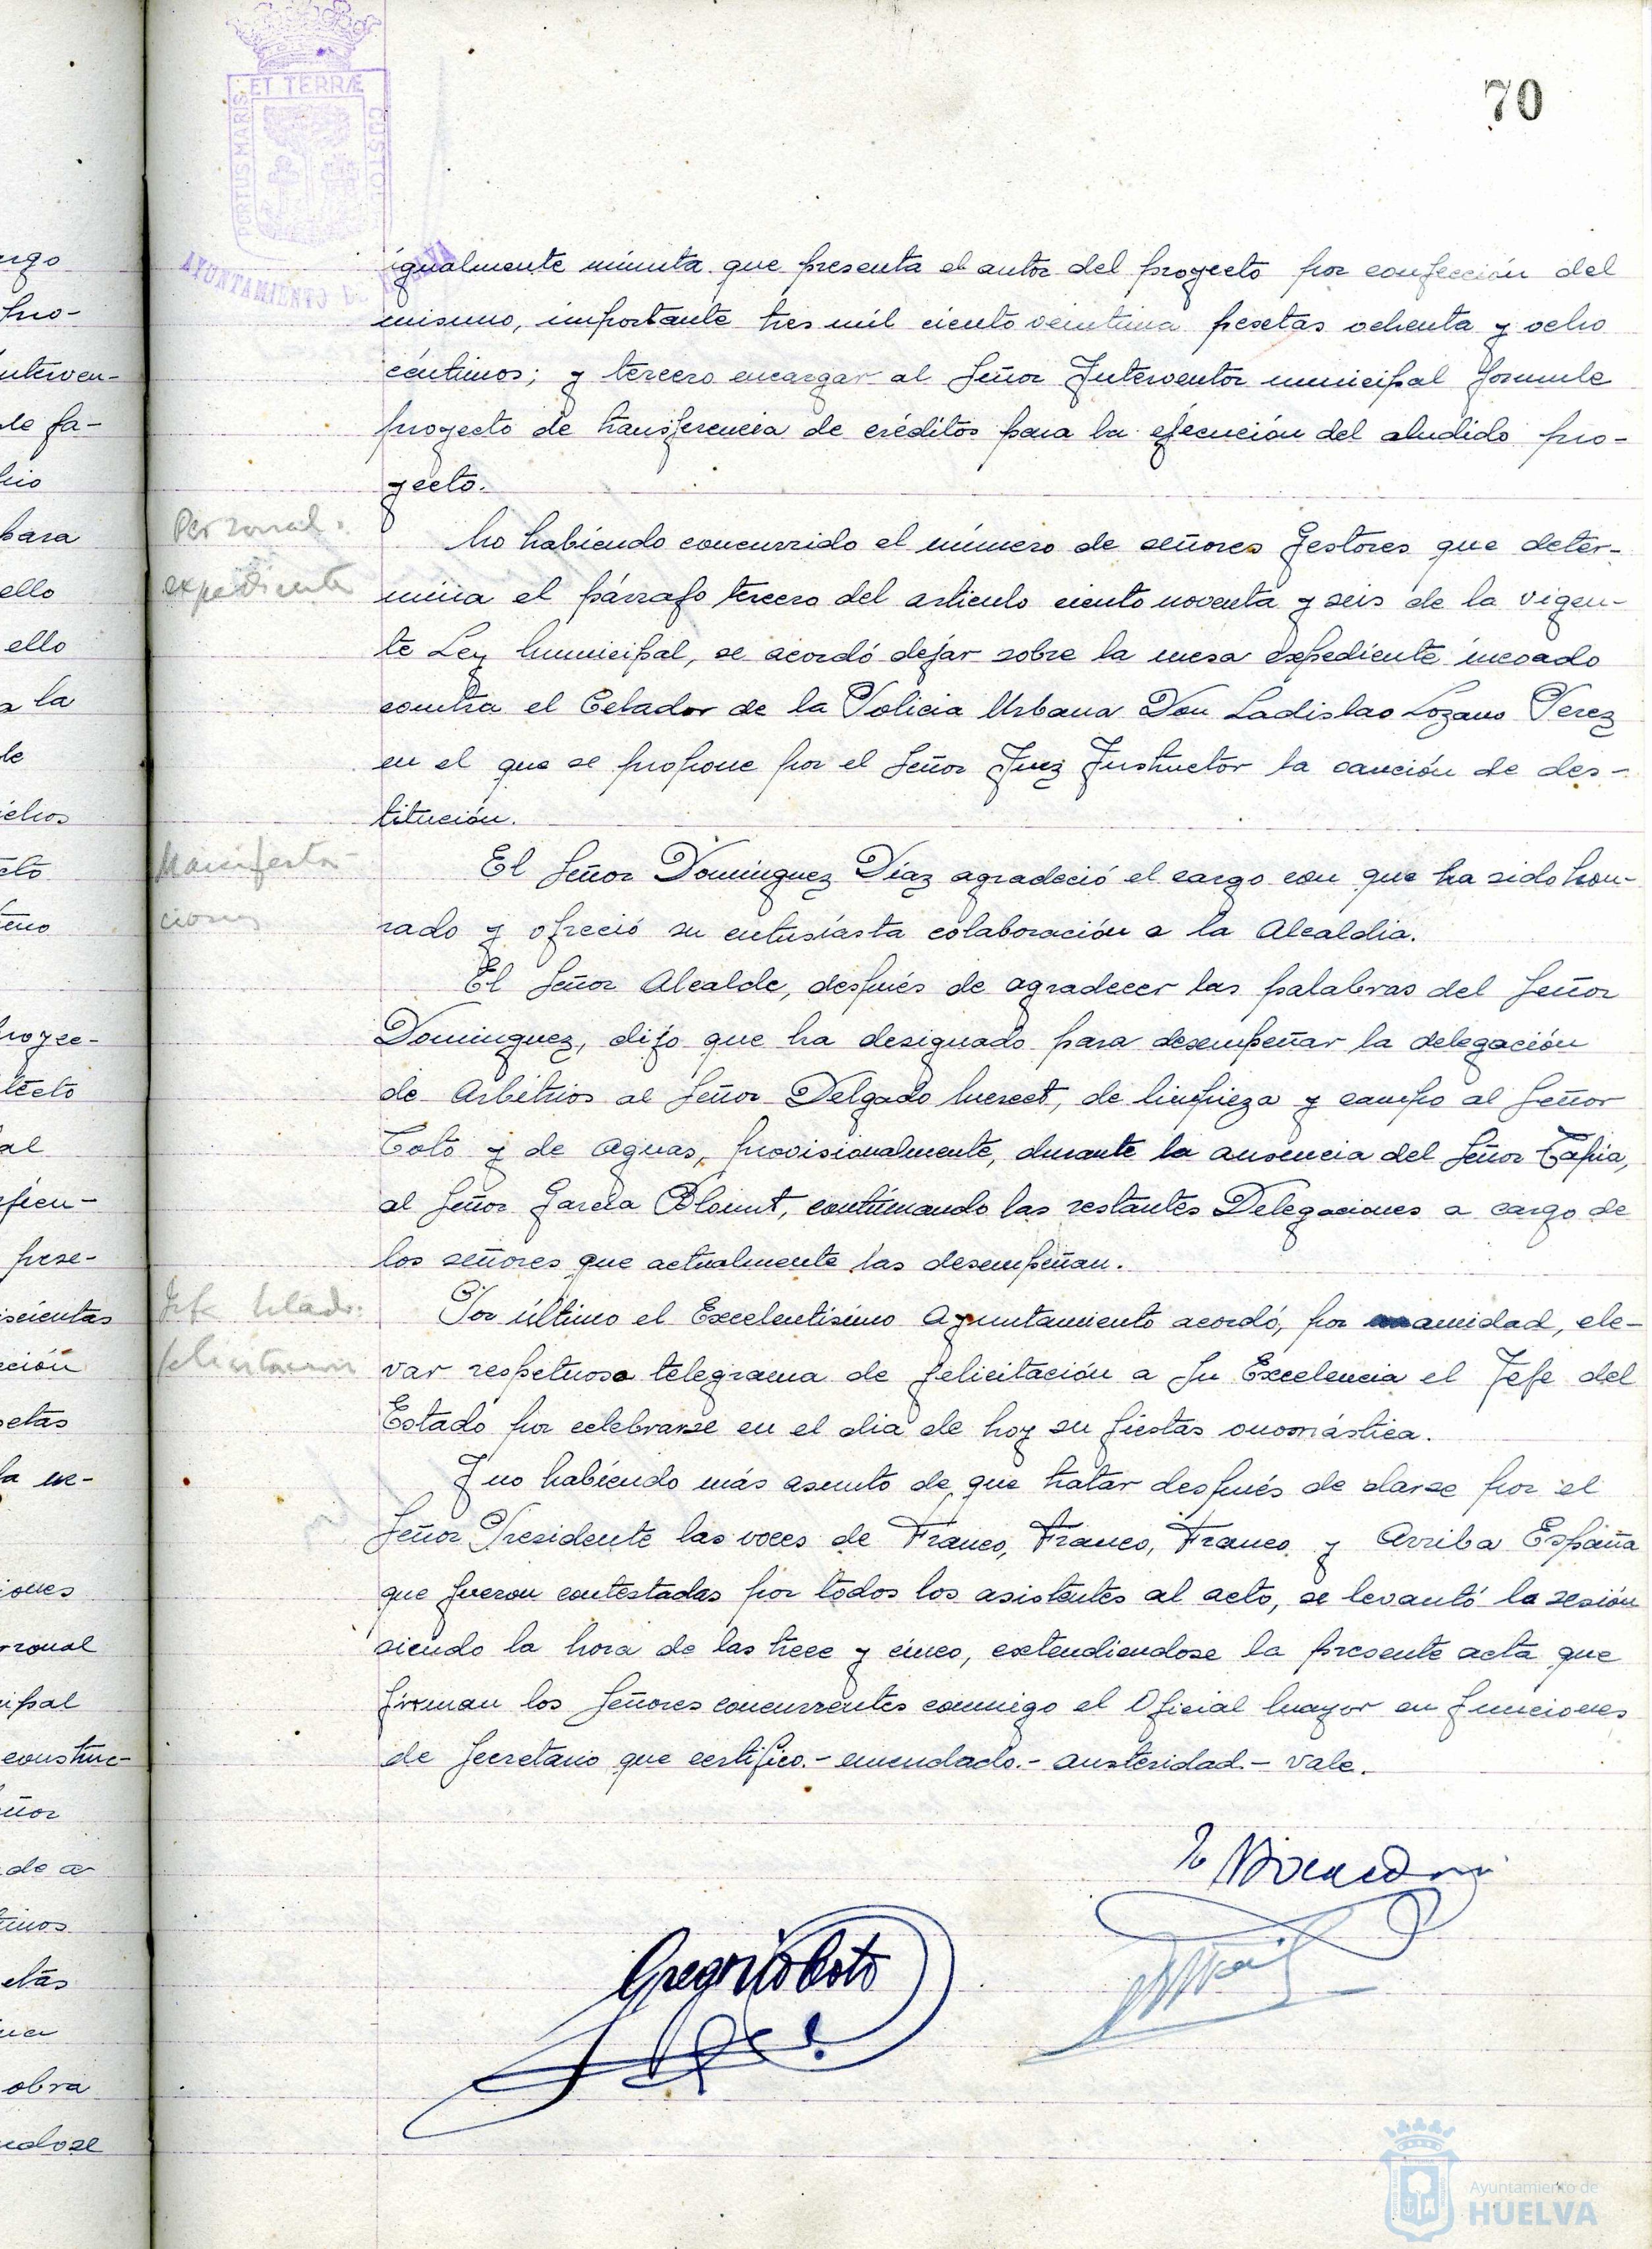 ET TERRÆ
PORTUS MARIS
CUSTODIA
AYUNTAMIENTO DE HUELVA
70
igualmente minuta que presenta el autor del proyecto por confección del
mismo, importante tres mil ciento veintiuna pesetas ochenta y ocho
céntimos; y tercero encargar al Señor Interventor municipal formule
proyecto de transferencia de créditos para la ejecución del aludido pro-
yecto.
Personal.
expediente
No habiendo concurrido el número de señores Gestores que deter-
mina el párrafo tercero del articulo ciento noventa y seis de la vigen-
te Ley Municipal, se acordó dejar sobre la mesa expediente incoado
contra el Celador de la Policia Urbana Don Ladislao Lozano Perez
en el que se propone por el Señor Juez Instructor la sanción de des-
titución.
Manifesta-
ciones
El Señor Dominguez Díaz agradeció el cargo con que ha sido hon-
rado y ofreció su entusiasta colaboración a la Alcaldia.
El Señor Alcalde, después de agradecer las palabras del Señor
Dominguez, dijo que ha designado para desempeñar la delegación
de Arbitrios al Señor Delgado Merset, de limpieza y campo al Señor
Coto y de Aguas, provisionalmente, durante la ausencia del Señor Tapia,
al Señor Garcia Blount, continuando las restantes Delegaciones a cargo de
los señores que actualmente las desempeñan.
Jefe Estado.
felicitacion
Por último el Excelentisimo Ayuntamiento acordó, por unamidad, ele-
var respetuoso telegrama de felicitación a Su Excelencia el Jefe del
Estado por celebrarse en el dia de hoy su fiestas onomástica.
Y no habiendo más asunto de que tratar después de darse por el
Señor Presidente las voces de Franco, Franco, Franco y Arriba España
que fueron contestadas por todos los asistentes al acto, se levantó la sesión
siendo la hora de las trece y cinco, extendiendose la presente acta que
firman los Señores concurrentes conmigo el Oficial Mayor en funciones
de Secretario que certifico.- enmendado.- austeridad.- vale.
Gregorio Coto
Ayuntamiento de
HUELVA